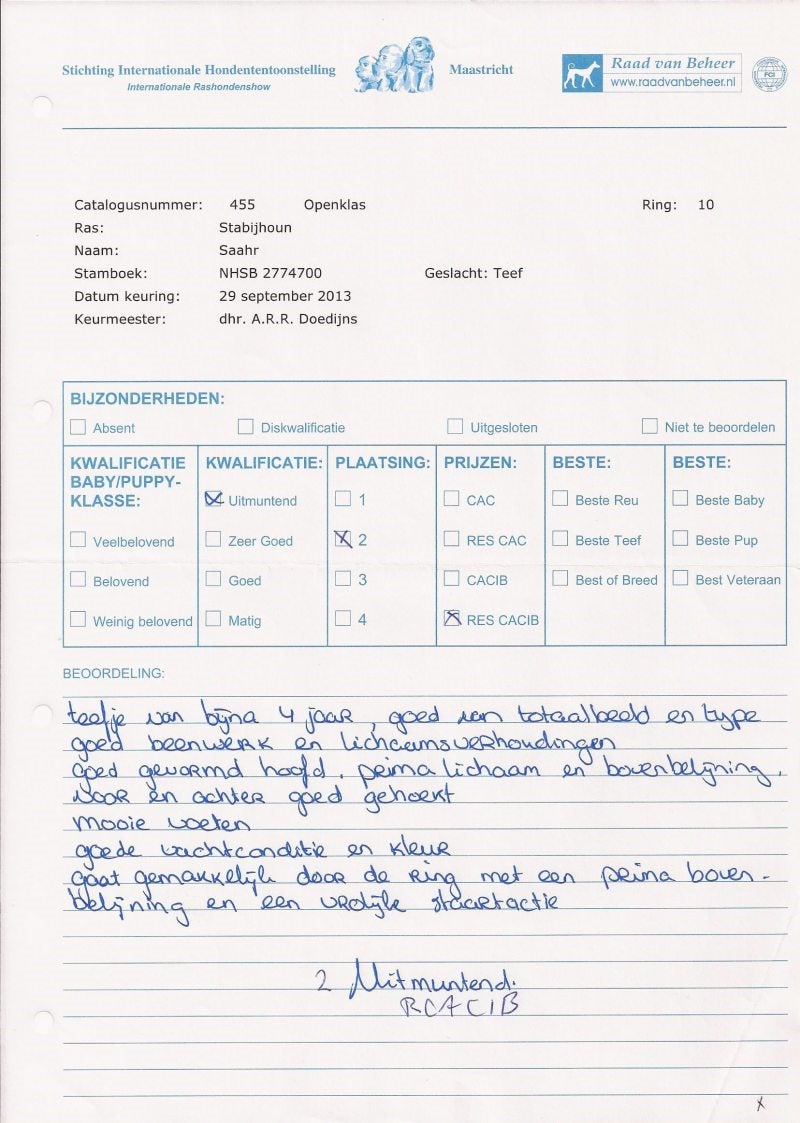 Stichting Internationale Hondententoonstelling Maastricht
Internationale Rashondenshow
Raad van Beheer
www.raadvanbeheer.nl
FCI
Catalogusnummer: 455 Openklas Ring: 10
Ras: Stabijhoun
Naam: Saahr
Stamboek: NHSB 2774700 Geslacht: Teef
Datum keuring: 29 september 2013
Keurmeester: dhr. A.R.R. Doedijns
BIJZONDERHEDEN:
Absent Diskwalificatie Uitgesloten Niet te beoordelen
KWALIFICATIE
BABY/PUPPY-
KLASSE:
Veelbelovend
Belovend
Weinig belovend
KWALIFICATIE:
Uitmuntend
Zeer Goed
Goed
Matig
PLAATSING:
1
2
3
4
PRIJZEN:
CAC
RES CAC
CACIB
RES CACIB
BESTE:
Beste Reu
Beste Teef
Best of Breed
BESTE:
Beste Baby
Beste Pup
Best Veteraan
BEOORDELING:
teefje van bijna 4 jaar, goed van totaalbeeld en type
goed beenwerk en lichaamsverhoudingen
goed gevormd hoofd. prima lichaam en bovenbelijning,
voor en achter goed gehoekt
mooie voeten
goede vachtconditie en kleur
gaat gemakkelijk door de ring met een prima boven-
belijning en een vrolijke staartactie
2 Uitmuntend.
RCACIB
x